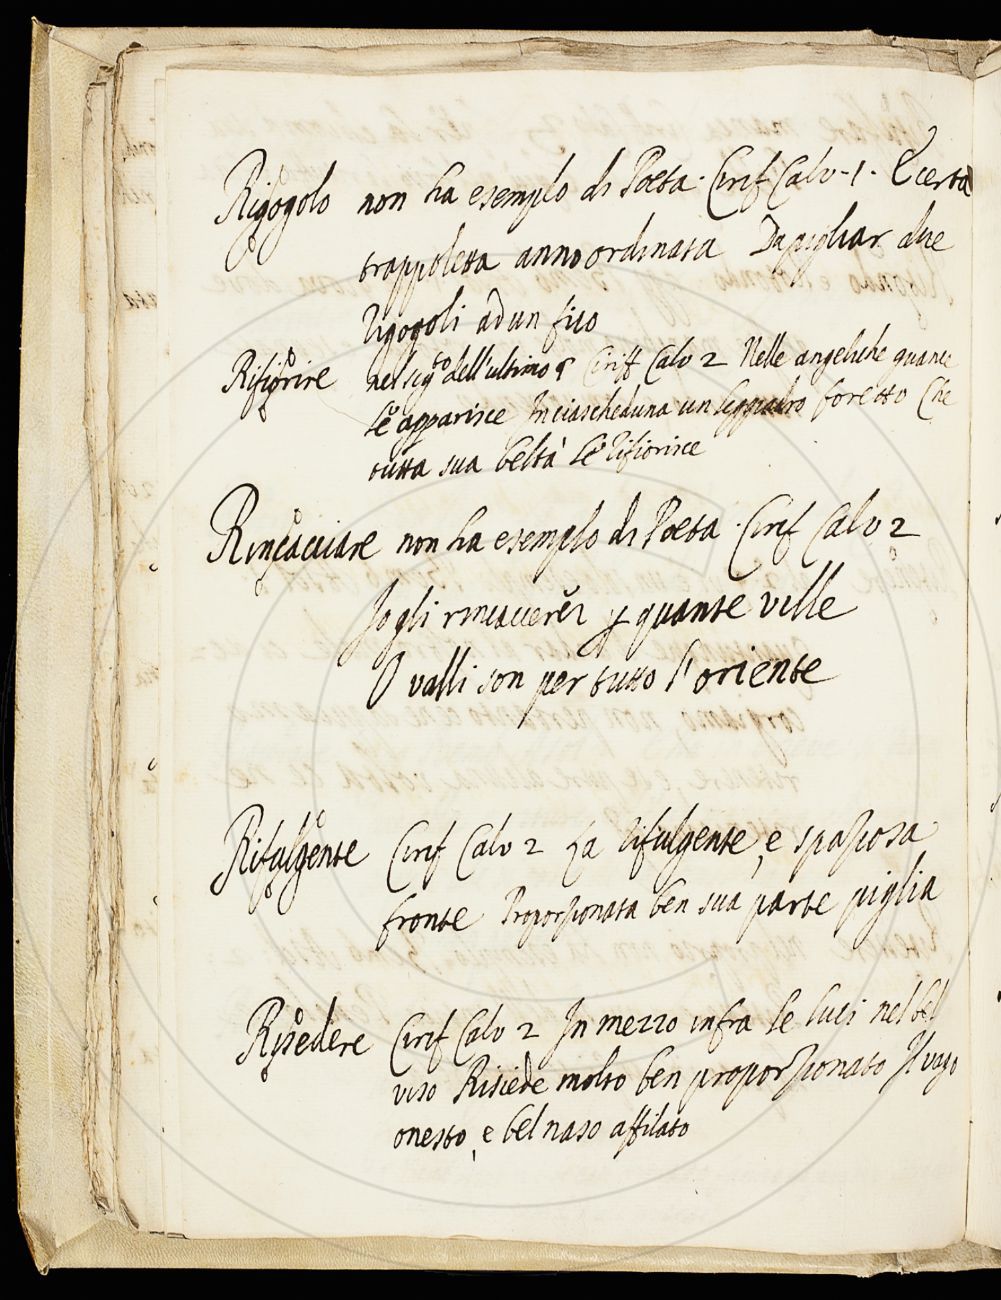 Rigogolo non ha esempio di Poeta. Cirif Calv. 1. E certa
trappoletta anno ordinata Da pigliar due
Rigogoli ad un fico
Rifiorire nel sig.to dell'ultimo § Ciriff Calv 2 Nelle angeliche guance
le apparisce In ciascheduna un leggiadro foretto Che
tutta sua beltà le rifiorisce
Rincacciare non ha esempio di Poeta. Cirif Calv 2
Io gli rincaccerei p quante ville
O valli son per tutto l'oriente
Rifulgente Cirif Calv 2 La rifulgente, e spaziosa
fronte Proporzionata ben sua parte piglia
Risedere Cirif Calv 2 In mezzo infra le luci nel bel
viso Risiede molto ben proporzionato Il vago
onesto, e bel naso affilato